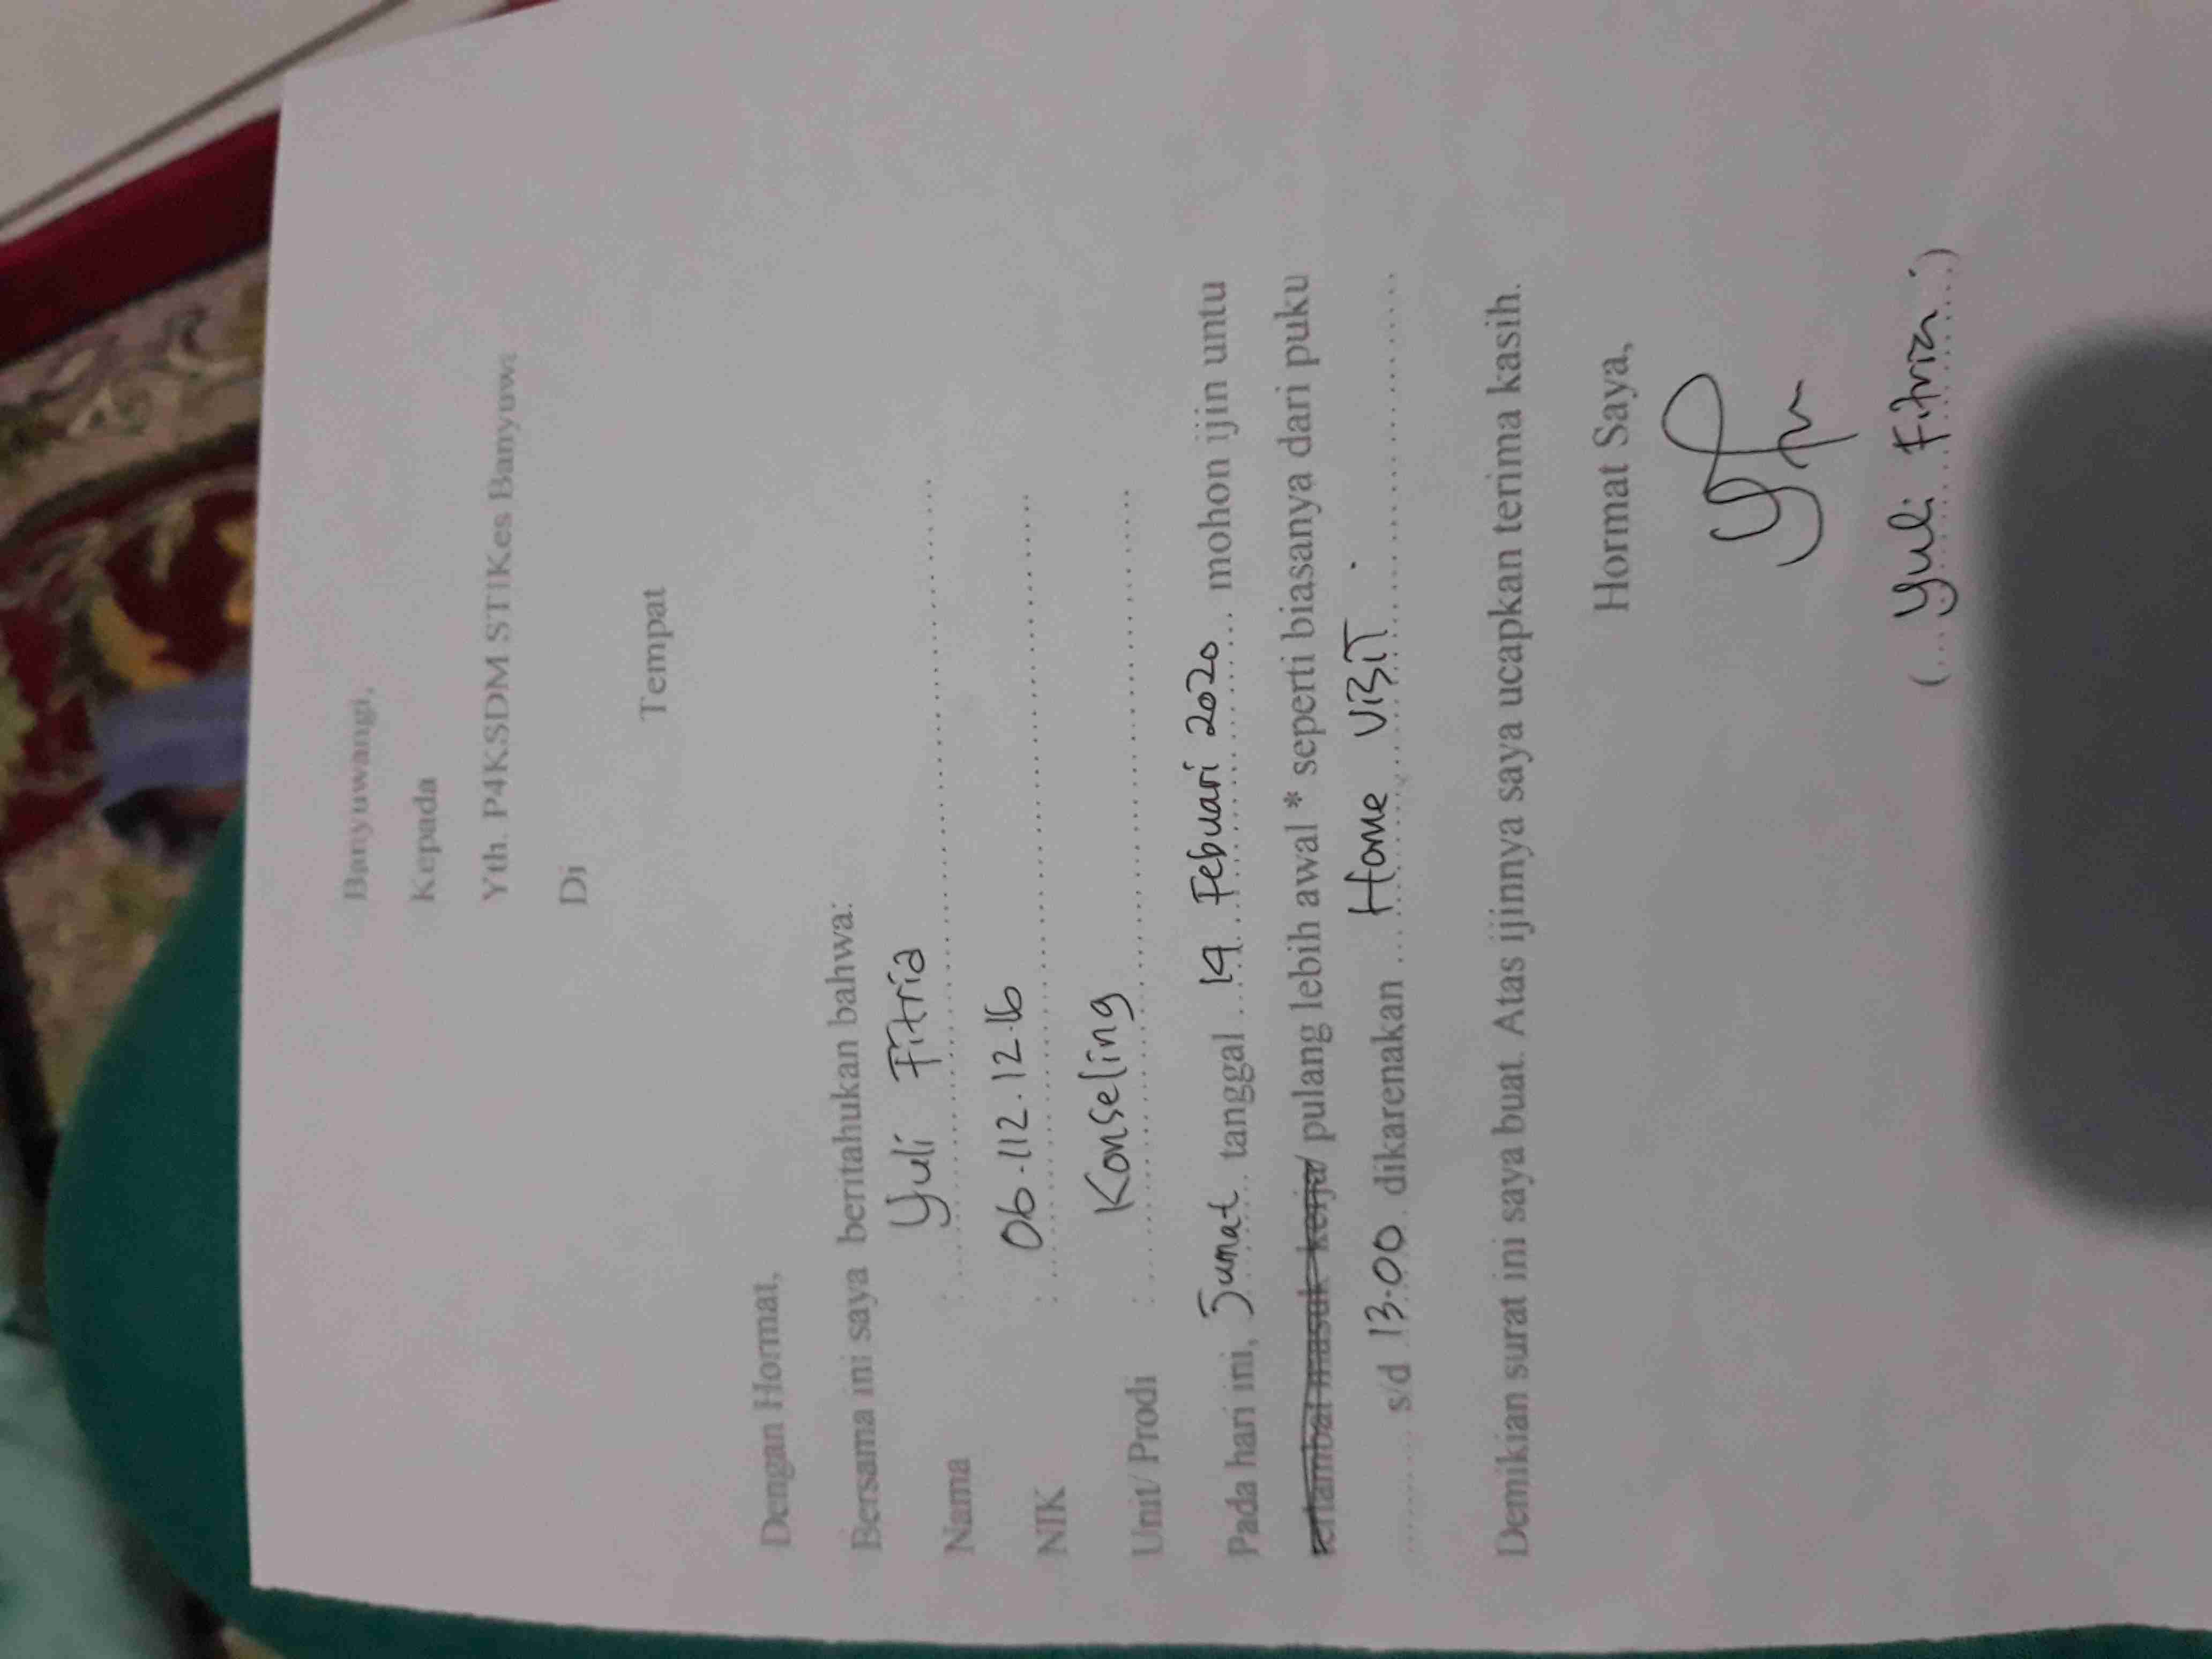 Banyuwangi,
Kepada
Yth. P4KSDM STIKes Banyuwa
Di
Tempat
Dengan Hormat,
Bersama ini saya beritahukan bahwa:
Nama : Yuli Fitria
NIK : 06.112.12.16
Unit/ Prodi : Konseling
Pada hari ini, Jumat tanggal 14 Febuari 2020 mohon ijin untu
terlambat masuk kerja/ pulang lebih awal * seperti biasanya dari puku
.......... s/d 13.00 dikarenakan Home ViSiT .
Demikian surat ini saya buat. Atas ijinnya saya ucapkan terima kasih.
Hormat Saya,
(Yuli Fitria)